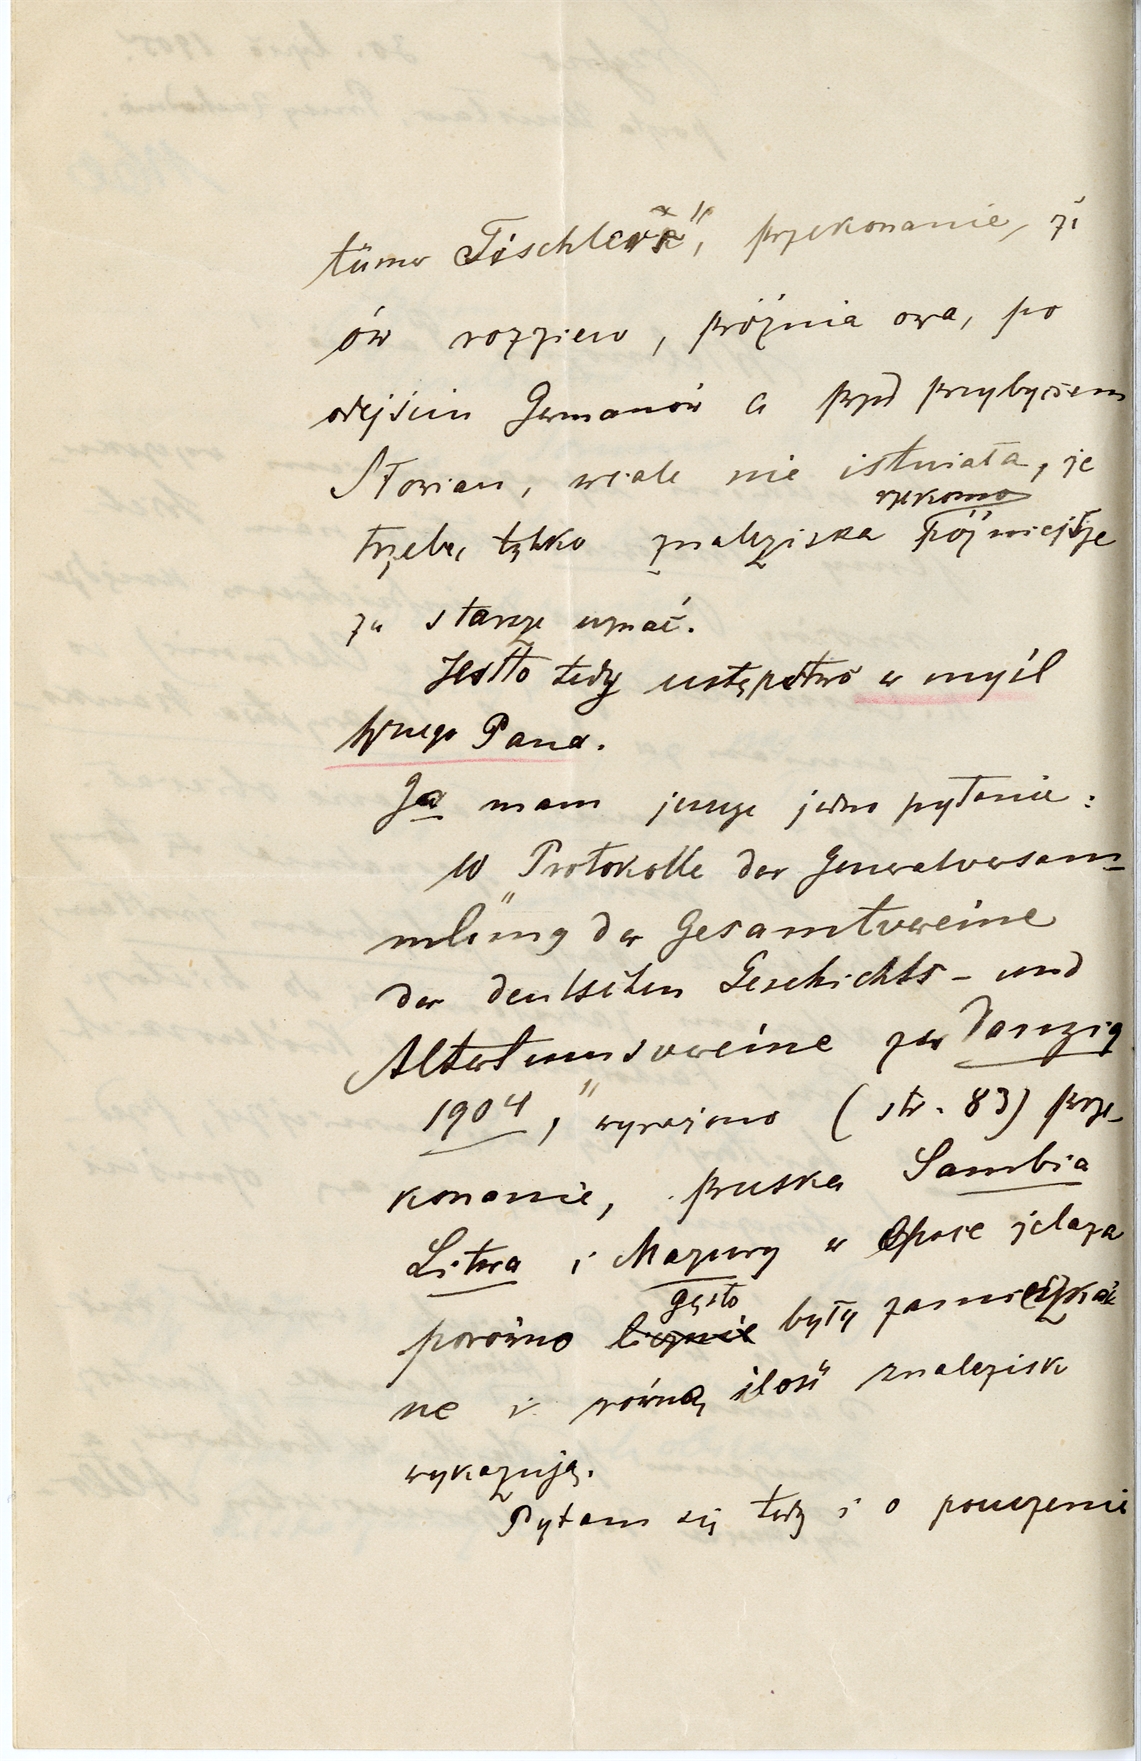 tümer Tischlera", przekonanie, że
ów rozziew, próżnia owa, po
odejściu Germanów a przed przybyciem
Słowian, wcale nie istniała, że
trzeba tylko znaleziska rzekomo późniejsze
za starsze uznać.
Jestto tedy ustępstwo w myśl
Pana.
Ja mam jeszcze jedno pytanie:
W "Protokolle der Generalversam-
mlüng der Gesamtvereine
der deutschen Geschichts- und
Altertumsvereine zu Danzig
1904," wyrażono (str. 83) prze-
konanie, pruska Sambia
Litwa i Mazury w epoce żelaza
porówno licznie gęsto były zamieszka
ne i równą ilość znalezisk
wykazują.
Pytam się tedy i o pouczenie